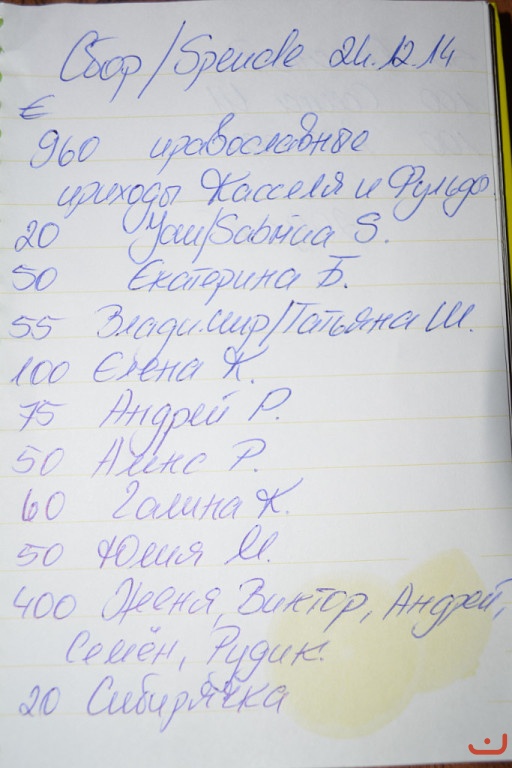 Сбор/Spende 24.12.14
€
960 православные
приходы Касселя и Фульдо
20 Jan/Sabrina S.
50 Екатерина Б.
55 Владимир/Татьяна Ш.
100 Елена К.
75 Андрей Р.
50 Алекс Р.
60 Галина К.
50 Юлия М.
400 Женя, Виктор, Андрей,
Семён, Рудик.
20 Сибирячка